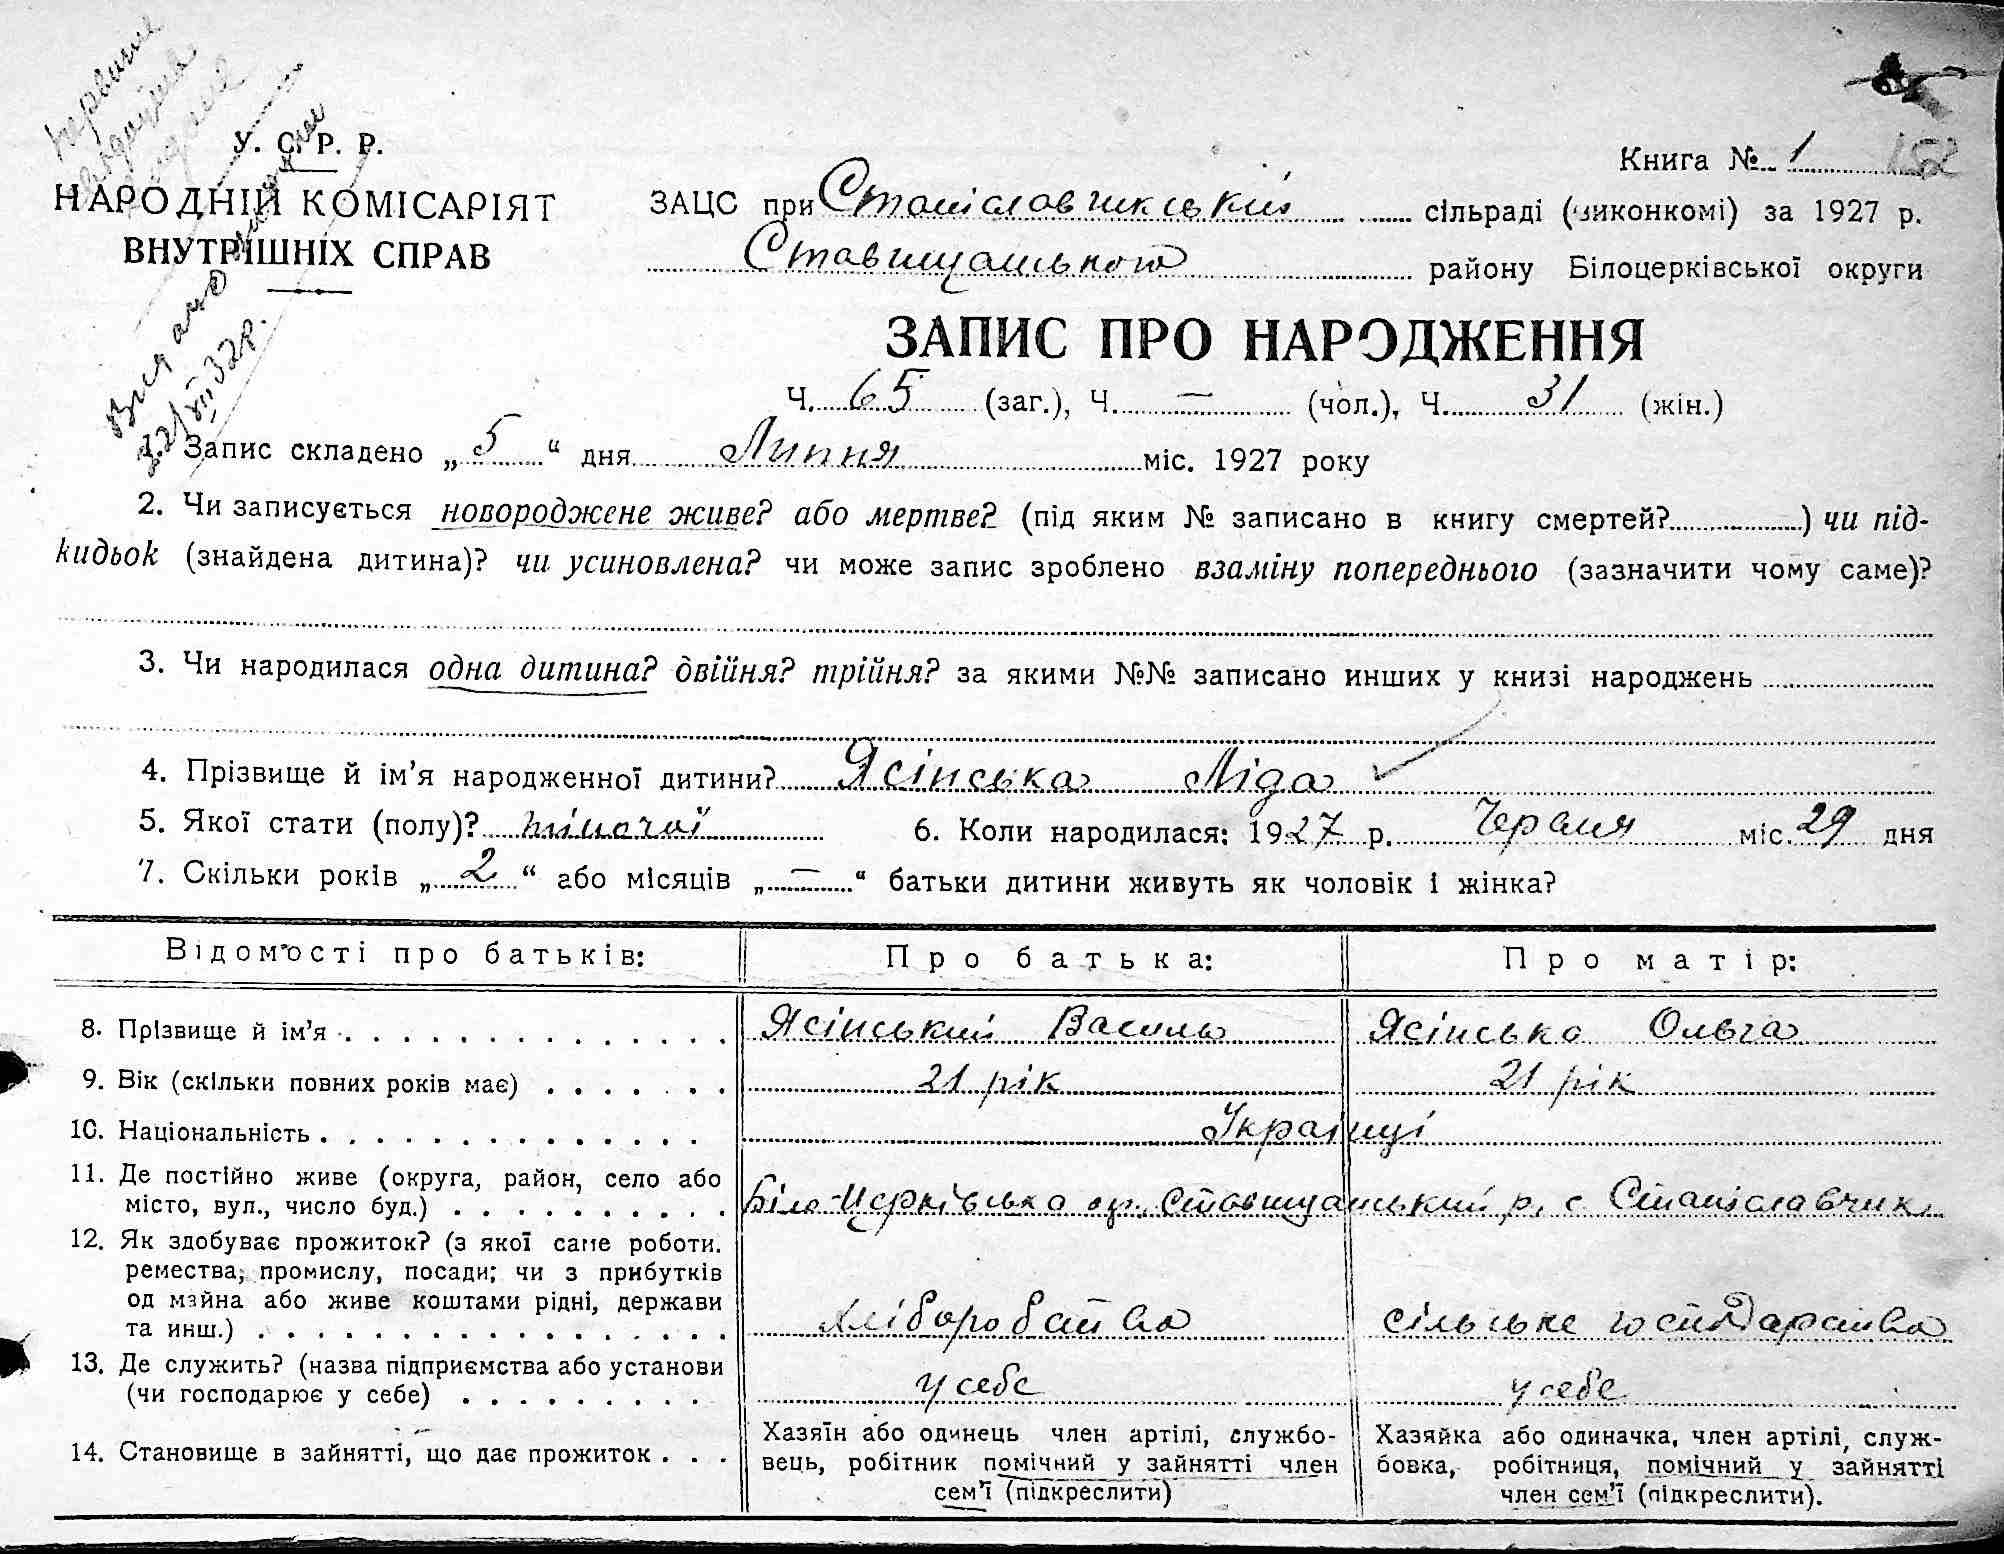 У. С. Р. Р.
НАРОДНІЙ КОМІСАРІЯТ
ВНУТРІШНІХ СПРАВ
Видано
21/VII 32р.
Книга № 1
152
ЗАЦС при Станіславчикській сільраді (виконкомі) за 1927 р.
Ставищанського району Білоцерківської округи
ЗАПИС ПРО НАРОДЖЕННЯ
Ч. 65 (заг.), Ч. — (чол.), Ч. 31 (жін.)
1. Запис складено „ 5 “ дня Липня міс. 1927 року
2. Чи записується новороджене живе? або мертве? (під яким № записано в книгу смертей? ) чи під-
кидьок (знайдена дитина)? чи усиновлена? чи може запис зроблено взаміну попереднього (зазначити чому саме)?
3. Чи народилася одна дитина? двійня? трійня? за якими №№ записано инших у книзі народжень
4. Прізвище й ім’я народженної дитини? Ясінська Ліда
5. Якої стати (полу)? жіночої 6. Коли народилася: 1927 р. Червня міс. 29 дня
7. Скільки років „ 2 “ або місяців „ — “ батьки дитини живуть як чоловік і жінка?
Відомості про батьків: Про батька: Про матір:
8. Прізвище й ім’я Ясінський Василь Ясінська Ольга
9. Вік (скільки повних років має) 21 рік 21 рік
10. Національність Українці
11. Де постійно живе (округа, район, село або
місто, вул., число буд.) Біло-Церківська ок., Ставищанський р, с. Станіславчик
12. Як здобуває прожиток? (з якої саме роботи.
ремества, промислу, посади; чи з прибутків
од майна або живе коштами рідні, держави
та инш.) хліборобство сільське господарство
13. Де служить? (назва підприємства або установи
(чи господарює у себе) у себе у себе
14. Становище в зайнятті, що дає прожиток
Хазяїн або одинець член артілі, службо-
вець, робітник помічний у зайнятті член
сем’ї (підкреслити)
Хазяйка або одиначка, член артілі, служ-
бовка, робітниця, помічний у зайнятті
член сем’ї (підкреслити).